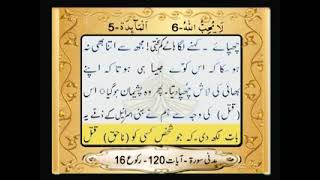 لَا يُحِبُّ اللهُ-6
اَلْمَآئِدَة-5
چھپائے۔ کہنے لگا ہائے کم بختی! مجھ سے اتنا بھی نہ
ہو سکا کہ اس کوّے جیسا ہی ہوتا کہ اپنے
بھائی کی لاش چھپا دیتا۔ پھر وہ پشیمان ہوگیا۝ اس
(قتل) کی وجہ سے ہم نے بنی اسرائیل کے ذمے یہ
بات لکھ دی۔ کہ: جو شخص کسی کو (ناحق) قتل
مدنی سورۃ - آیات 120 - رکوع 16